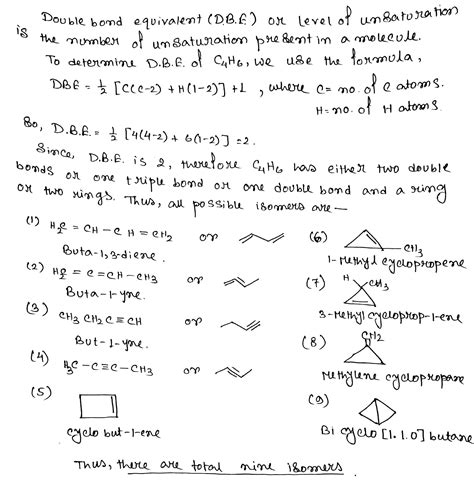 Double bond equivalent (D.B.E) or level of unsaturation
is the number of unsaturation present in a molecule.
To determine D.B.E. of C4H6, we use the formula,
DBE = 1/2 [C(C-2) + H(1-2)] + 1 , where C = no. of C atoms.
H = no. of H atoms.
So, D.B.E. = 1/2 [4(4-2) + 6(1-2)] = 2.
Since, D.B.E. is 2, therefore C4H6 has either two double
bonds or one triple bond or one double bond and a ring
or two rings. Thus, all possible isomers are —
(1) H2C = CH - CH = CH2 or
Buta-1,3-diene.
(2) H2C = C = CH - CH3 or
Buta-1-yne.
(3) CH3 CH2 C ≡ CH or
But-1-yne.
(4) H3C - C ≡ C - CH3 or
(5)
cyclo but-1-ene
(6) CH3
1-Methyl cyclopropene
(7) H CH3
3-Methyl cycloprop-1-ene
(8) CH2
Methylene cyclopropane
(9)
Bi cyclo [1.1.0] butane
Thus, there are total nine isomers.